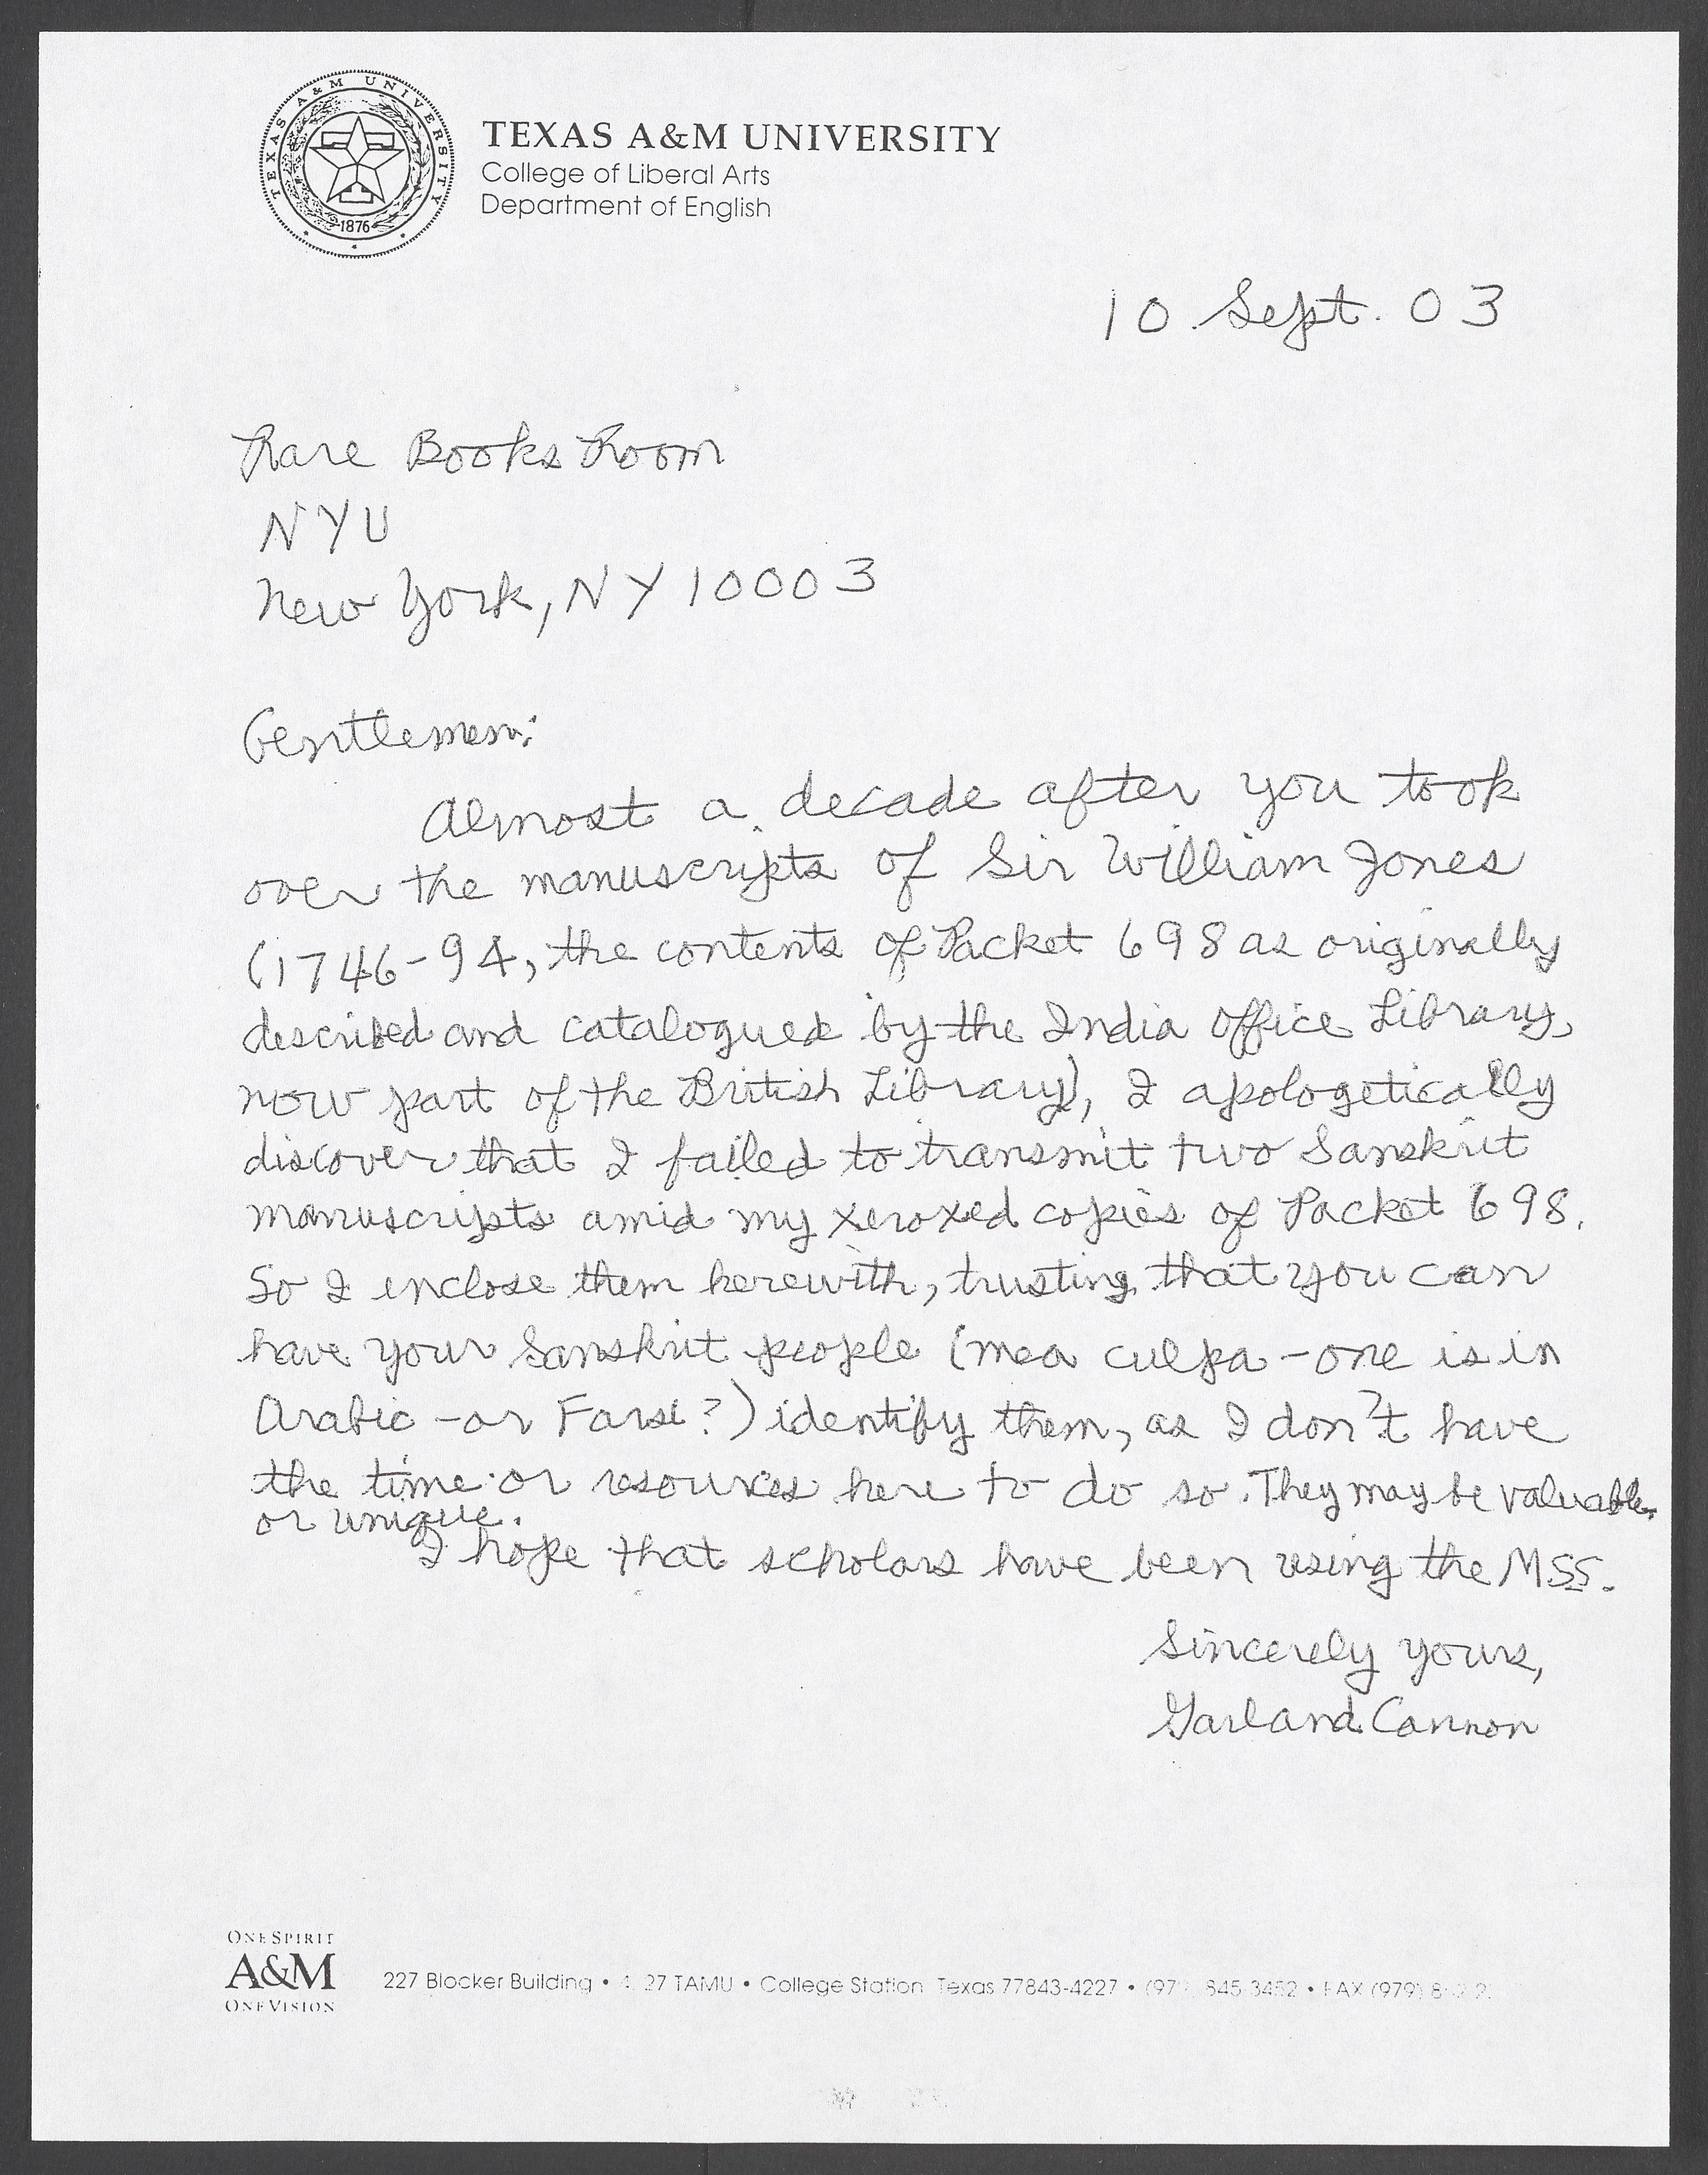 TEXAS A&M UNIVERSITY
1876
TEXAS A&M UNIVERSITY
College of Liberal Arts
Department of English
10 Sept. 03
Rare Books Room
NYU
New York, NY 10003
Gentlemen:
Almost a decade after you took
over the manuscripts of Sir William Jones
(1746-94, the contents of Packet 698 as originally
described and catalogued by the India Office Library,
now part of the British Library), I apologetically
discover that I failed to transmit two Sanskrit
manuscripts amid my xeroxed copies of Packet 698.
So I enclose them herewith, trusting that you can
have your Sanskrit people (mea culpa - one is in
Arabic - or Farsi?) identify them, as I don't have
the time or resources here to do so. They may be valuable
or unique.
I hope that scholars have been using the MSS.
Sincerely yours,
Garland Cannon
ONE SPIRIT
A&M
ONE VISION
227 Blocker Building • 27 TAMU • College Station Texas 77843-4227 • (97 845-3452 • FAX (979) 8